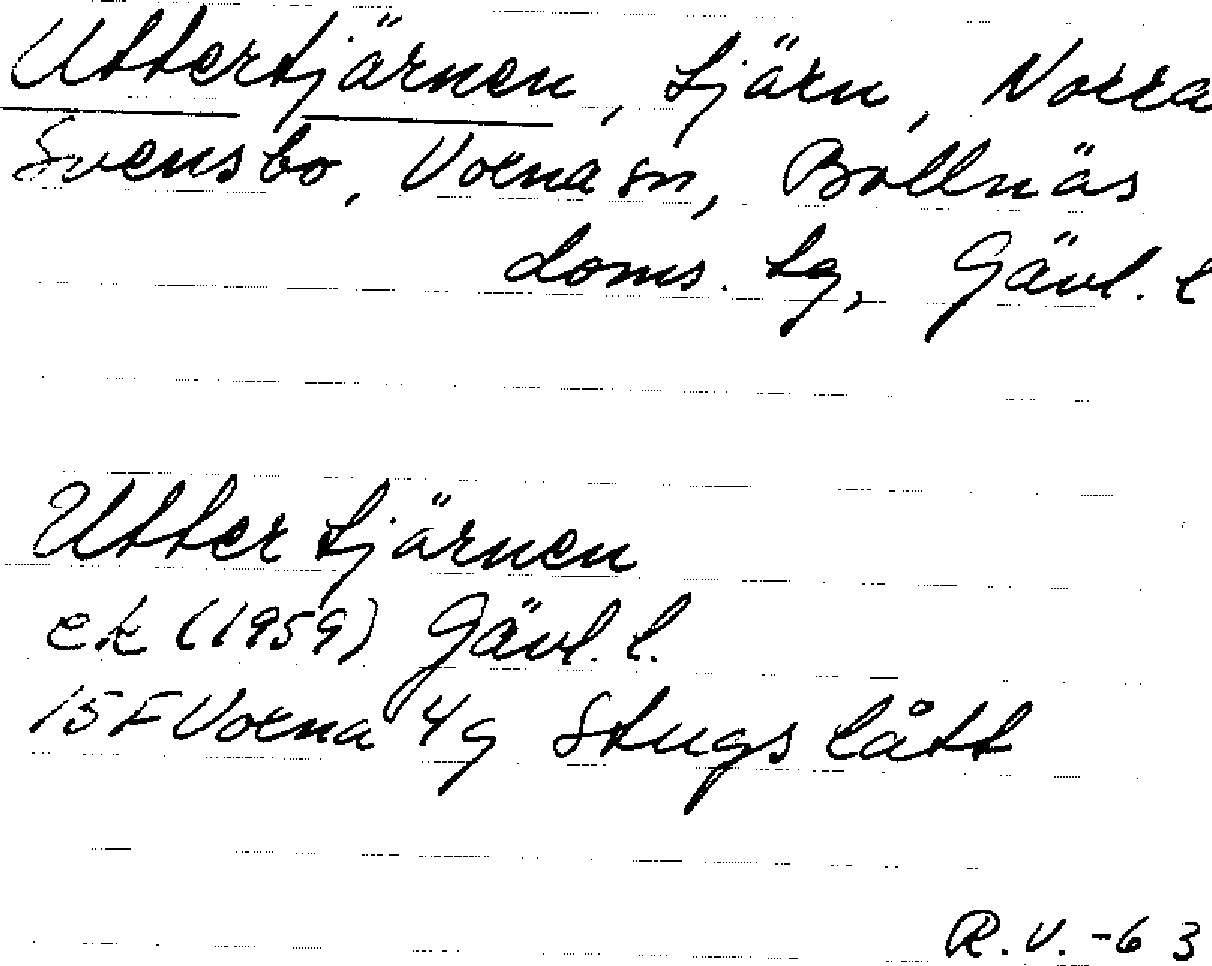 Uttertjärnen, tjärn, Norra
Svensbo, Voxna sn, Bollnäs
doms. tg, Gävl. l
Uttertjärnen
ek (1959) Gävl. l.
15F Voxna 4g Stugslått
R.V. -63